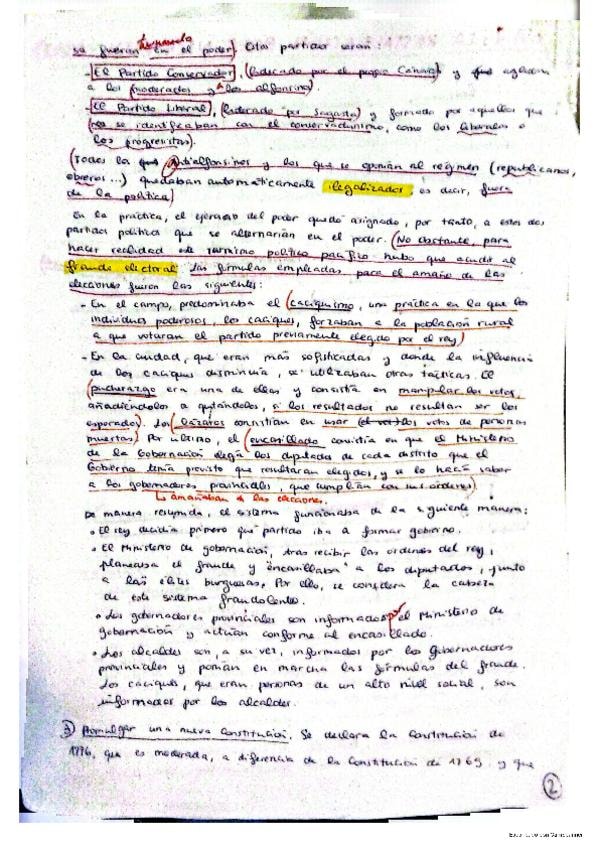 se fueran turnando en el poder). Estos partidos serán:
- El Partido Conservador, (liderado por el propio Cánovas) y que aglutina
a los (moderados y a los alfonsinos).
- El Partido Liberal, (liderado por Sagasta) y formado por aquellos que
(no se identificaban con el conservadurismo, como los liberales o
los progresistas).
(Todos los que antialfonsinos y los que se oponían al régimen (republicanos,
obreros...) quedaban automáticamente ilegalizados es decir, fuera
de la política)
En la práctica, el ejercicio del poder quedó asignado, por tanto, a estos dos
partidos políticos que se alternarían en el poder. (No obstante, para
hacer realidad este turnismo político pacífico hubo que acudir al
fraude electoral. Las fórmulas empleadas para el amaño de las
elecciones fueron las siguientes:
- En el campo, predominaba el (caciquismo, una práctica en la que los
individuos poderosos, los caciques, forzaban a la población rural
a que votaran el partido previamente elegido por el rey)
- En la ciudad, que eran más sofisticadas y donde la influencia
de los caciques disminuía, se utilizaban otras tácticas. El
(pucherazo era una de ellas y consistía en manipular los votos,
añadiéndolos o quitándolos, si los resultados no resultan ser los
esperados). Los (lázaros consistían en usar los votos de personas
muertas). Por último, el (encasillado consistía en que el Ministerio
de la Gobernación elegía los diputados de cada distrito que el
Gobierno tenía previsto que resultaran elegidos, y se lo hacía saber
a los gobernadores provinciales, que cumplían con sus órdenes)
↳ amañaban las elecciones.
De manera resumida, el sistema funcionaba de la siguiente manera:
• El rey decidía primero qué partido iba a formar gobierno.
• El Ministerio de gobernación, tras recibir las órdenes del rey,
planeaba el fraude y "encasillaba" a los diputados, junto
a las élites burguesas. Por ello, se considera la cabeza
de este sistema fraudulento.
• Los gobernadores provinciales son informados por el Ministerio de
gobernación y actúan conforme al encasillado.
• Los alcaldes son, a su vez, informados por los gobernadores
provinciales y ponían en marcha las fórmulas del fraude.
Los caciques, que eran personas de un alto nivel social, son
informados por los alcaldes.
3) Promulgar una nueva Constitución. Se declara la Constitución de
1876, que es moderada, a diferencia de la Constitución de 1869, y que
2